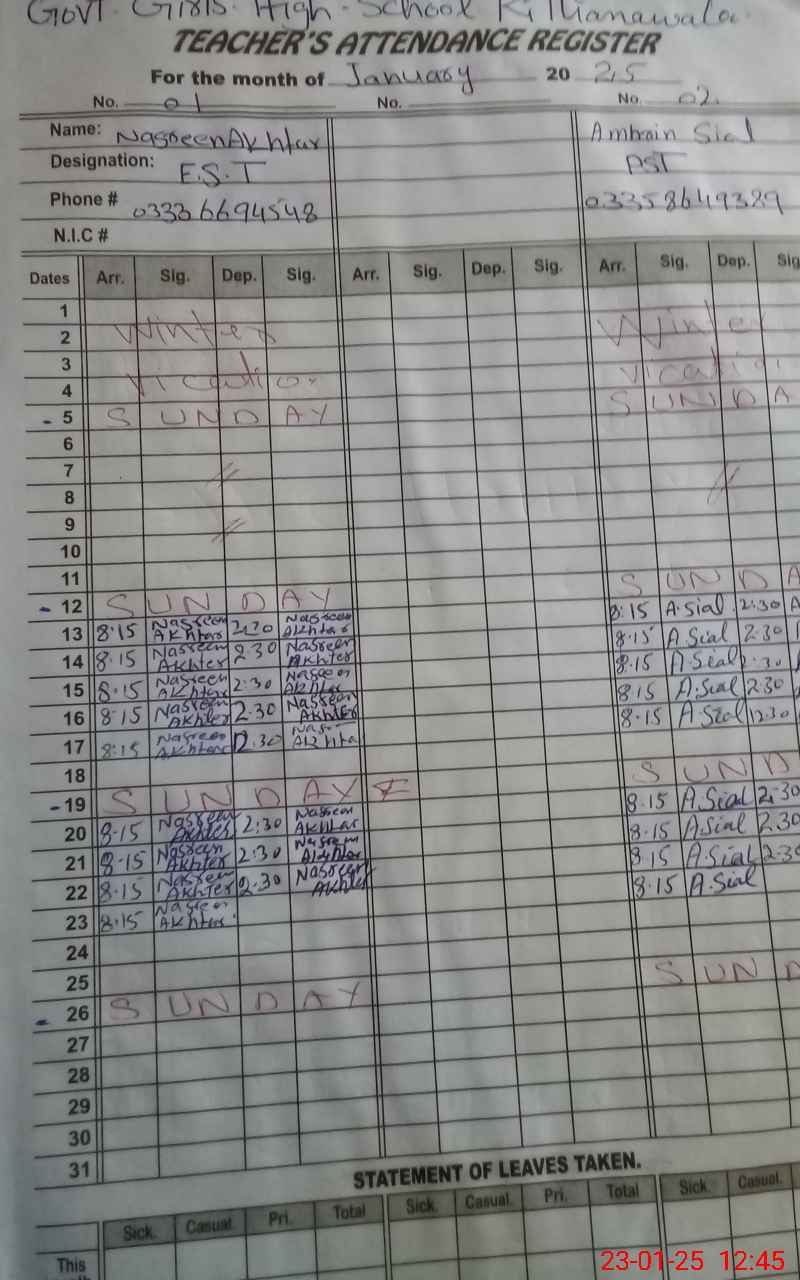 GOVT. Girls. High. School Killianawala.
TEACHER'S ATTENDANCE REGISTER
For the month of January 2025
No. 01 No. No. 02.
Name: Nasreen Akhtar Ambrain Sial
Designation: E.S.T PST
Phone # 03336694548 03358649389
N.I.C #
Dates Arr. Sig. Dep. Sig. Arr. Sig. Dep. Sig. Arr. Sig. Dep. Sig
1
2 Winter Winte
3
4 Vication Vicatio
- 5 S U N D A Y S U N D A
6
7
8
9
10
11
- 12 S U N D A Y S U N D A
13 8:15 Nasreen Akhtar 2:30 Nasreen Akhtar 8:15 A.Sial 2:30 A
14 8:15 Nasreen Akhter 2:30 Nasreen Akhter 8:15 A.Sial 2:30
15 8:15 Nasreen Akhter 2:30 Nasreen Akhtar 8:15 A.Sial 2:30
16 8:15 Nasreen Akhter 2:30 Nasreen Akhter 8:15 A.Sial 2:30
17 8:15 Nasreen Akhtar 2:30 Nasr Akhtar 8:15 A.Sial 2:30
18
- 19 S U N D A Y S U N D
20 8:15 Nasreen Akhter 2:30 Nasreen Akhtar 8:15 A.Sial 2:30
21 8:15 Nasreen Akhter 2:30 Nasreen Akhtar 8:15 A.Sial 2:30
22 8:15 Nasreen Akhter 2:30 Nasreen Akhter 8:15 A.Sial 2:30
23 8:15 Nasreen Akhtar 8:15 A.Sial
24
25
- 26 S U N D A Y S U N D
27
28
29
30
31
STATEMENT OF LEAVES TAKEN.
Sick. Casual. Pri. Total Sick. Casual. Pri. Total Sick. Casual.
This
23-01-25 12:45